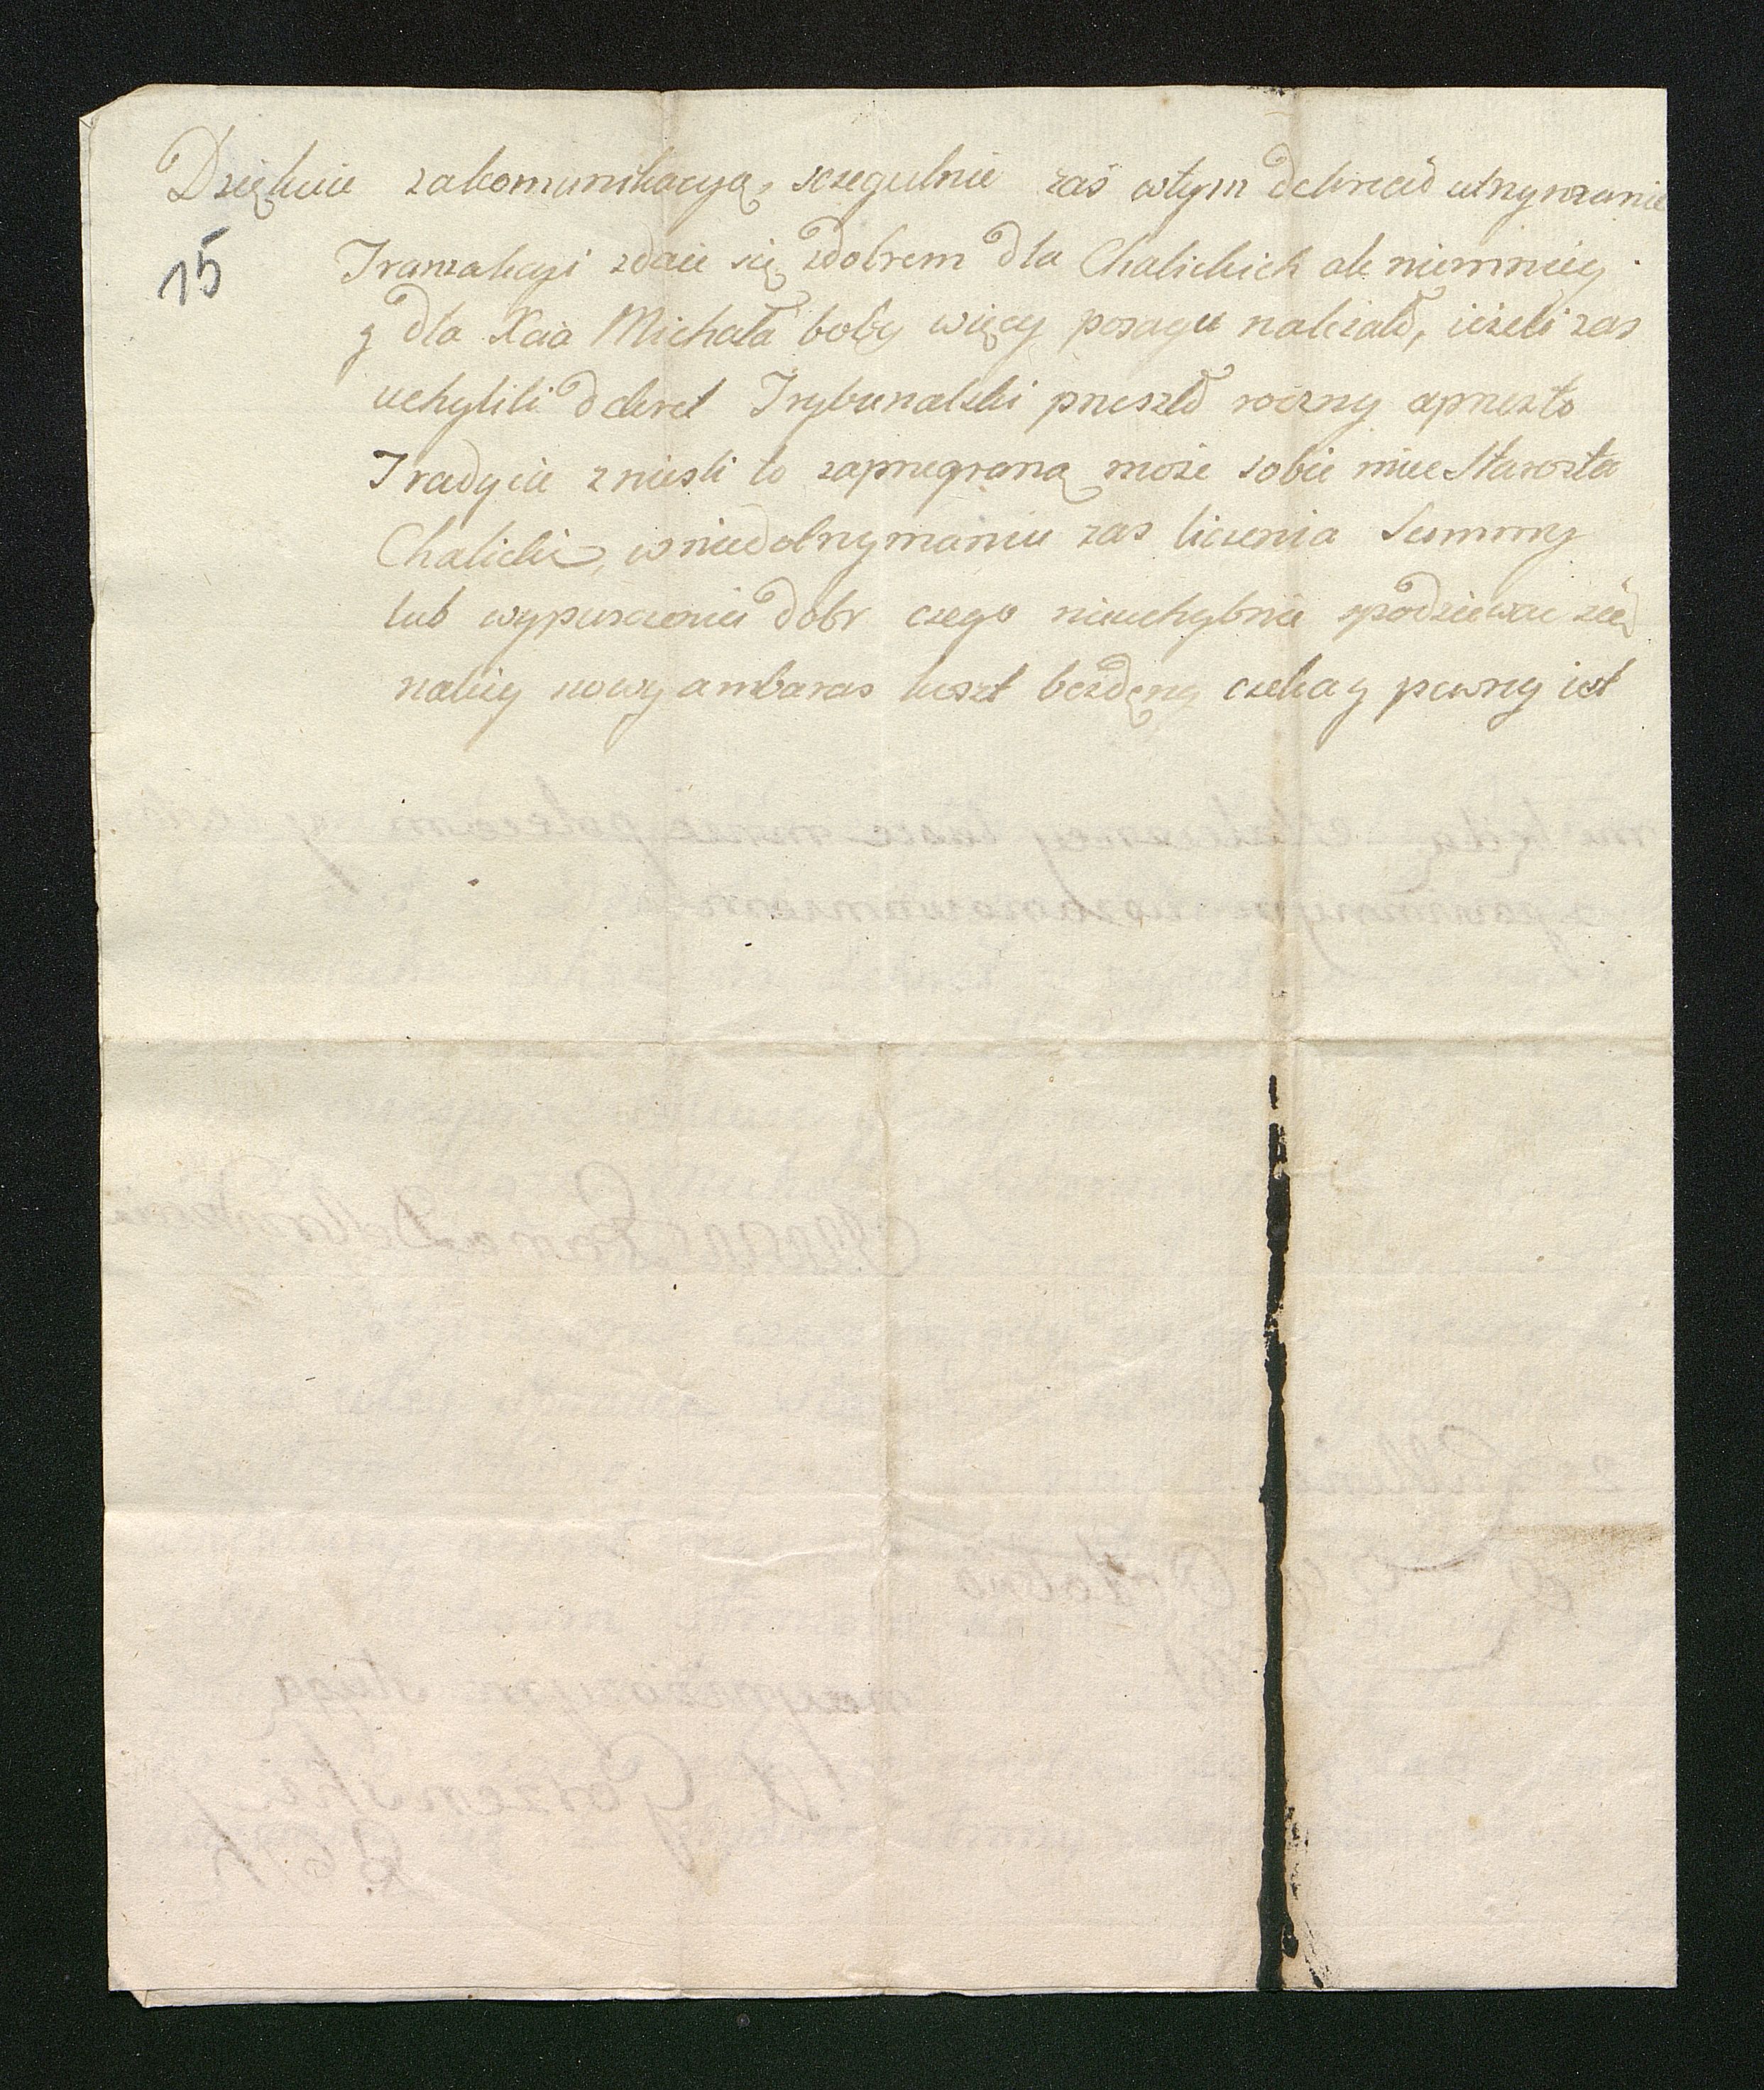 Dziękuie zakomunikacyą, sczegulnie zaś wtym dekrecie utrzymanie
15
Tranzakcyi zdaie się zdobrem dla Chalickich ale niemniey
y dla Xcia Michała boby więcy posagu należało, ieżeli zas
uchylili dekret Trybunalski przeszło roczny aprzezto
Tradycie znieśli to zaprzegraną może sobie miec Starosta
Chalicki, w niedotrzymaniu zas liczenia Summy
lub wypuszczenia dobr czego nieuchybnie spodziewac się
należy nowy ambaras koszt bezdęny czeka y pewny iest